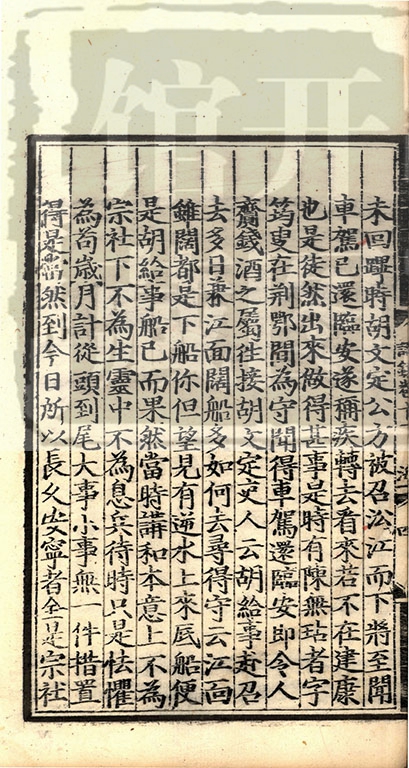 未回蹕時胡文定公方被召㳂江而下將至聞
車駕已還臨安遂稱疾轉去看來若不在建康
也是徒然出來做得甚事是時有陳無玷者字
筠叟在荆鄂間為守聞得車駕還臨安即令人
齎錢酒之屬徃接胡文定吏人云胡給事赴召
去多日兼江面闊船多如何去尋得守云江面
雖闊都是下船你但望見有逆水上來底船便
是胡給事船已而果然當時講和本意上不為
宗社下不為生靈中不為息兵待時只是怯懼
為苟歲月計從頭到尾大事小事無一件措置
得是當然到今日所以長久安寧者全是宗社
開館